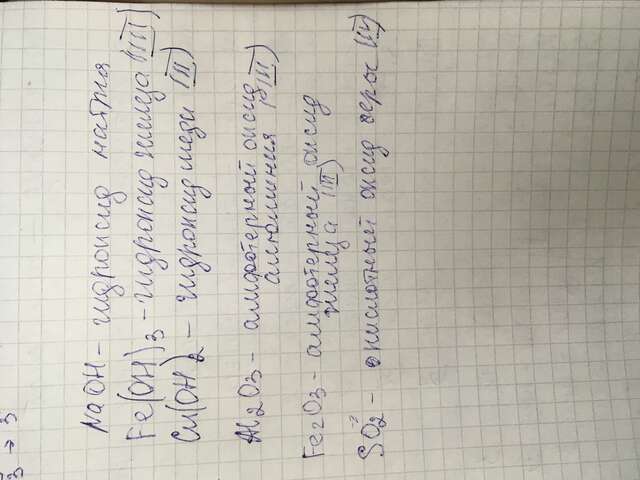 3 → 3
NaOH - гидроксид натрия
Fe(OH)3 - гидроксид железа (III)
Cu(OH)2 - гидроксид меди (II)
Al2O3 - амфотерный оксид
алюминия (III)
Fe2O3 - амфотерный оксид
железа (III)
SO2 - кислотный оксид серы (IV)